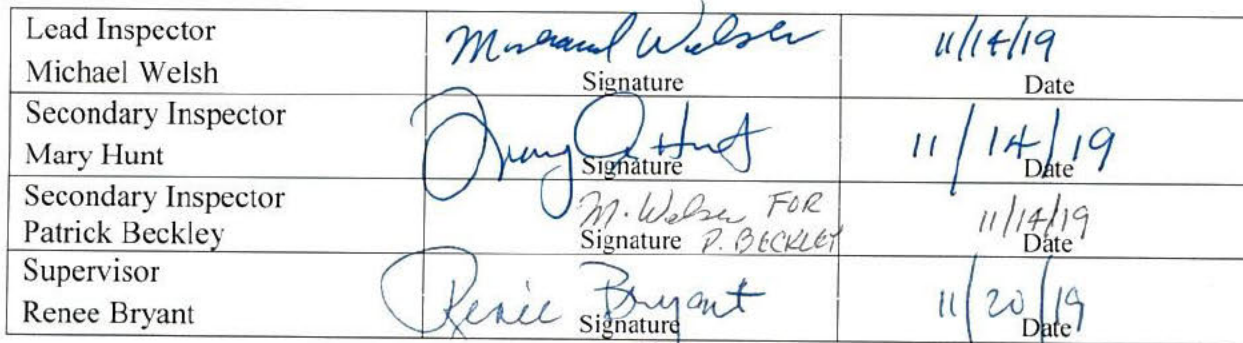 Lead Inspector
Michael Welsh
Michael Welsh
Signature
11/14/19
Date
Secondary Inspector
Mary Hunt
Mary A Hunt
Signature
11/14/19
Date
Secondary Inspector
Patrick Beckley
M. Welsh FOR
P. BECKLEY
Signature
11/14/19
Date
Supervisor
Renee Bryant
Renée Bryant
Signature
11/20/19
Date